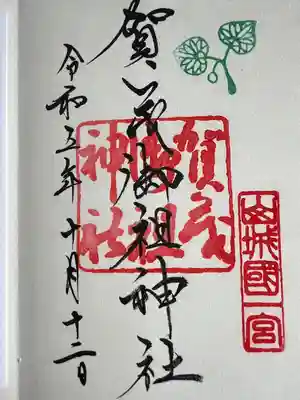 山城國一宮
賀茂
御祖
神社
賀茂御祖神社
令和五年十月十二日